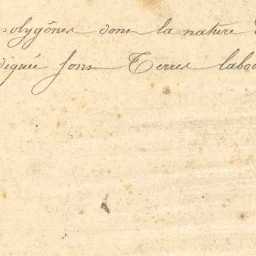 polygônes dont la nature
diquée sous Terres labou